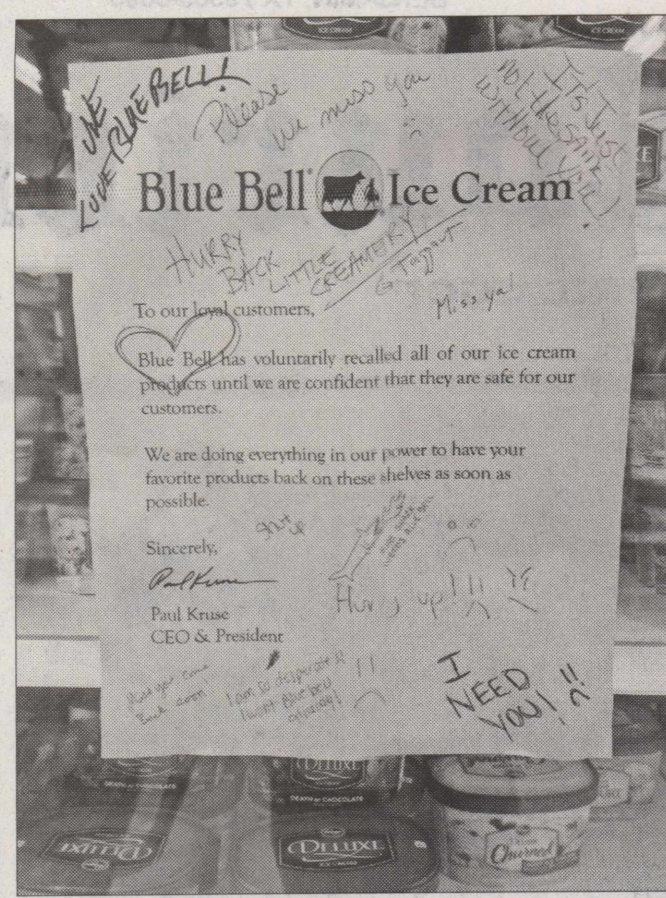 ICE CREAM
WE
LOVE BLUE BELL!
Please
we miss you
It's Just
not the same
without you!
Blue Bell Ice Cream
HURRY
BACK LITTLE
CREAMERY
G Taggart
Miss ya!
To our loyal customers,
Blue Bell has voluntarily recalled all of our ice cream
products until we are confident that they are safe for our
customers.
We are doing everything in our power to have your
favorite products back on these shelves as soon as
possible.
Sincerely,
Paul Kruse
Paul Kruse
CEO & President
Hurry up!!!
back soon!
I am so desperate
I want Blue bell
I
NEED
YOU!
DEATH BY CHOCOLATE
DELUXE
DEATH BY CHOCOLATE
DELUXE
DELUXE
ICE CREAM
Churned